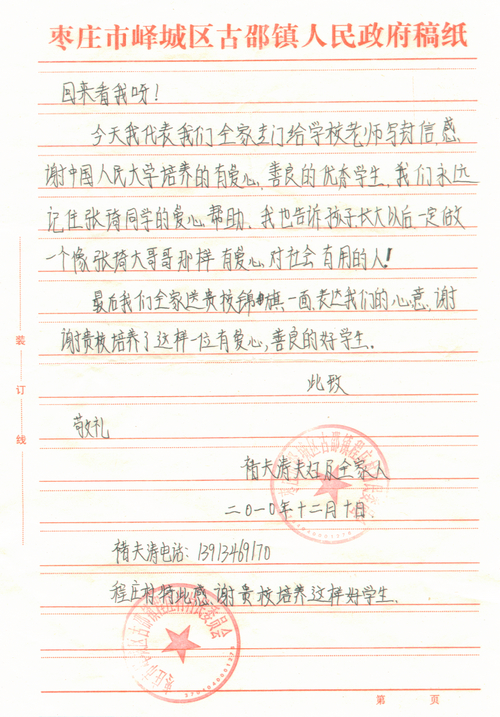 枣庄市峄城区古邵镇人民政府稿纸
回来看我呀！
今天我代表我们全家专门给学校老师写封信，感
谢中国人民大学培养的有爱心，善良的优秀学生，我们永远
记住张琦同学的爱心帮助，我也告诉孩子长大以后一定做
一个像张琦大哥哥那样有爱心对社会有用的人！
最后我们全家送贵校锦旗一面，表达我们的心意，谢
谢贵校培养了这样一位有爱心，善良的好学生．
此致
敬礼
褚夫涛夫妇及全家人
二〇一〇年十二月十日
褚夫涛电话：13913469170
程庄村特此感谢贵校培养这样好学生．
装
订
线
第 页